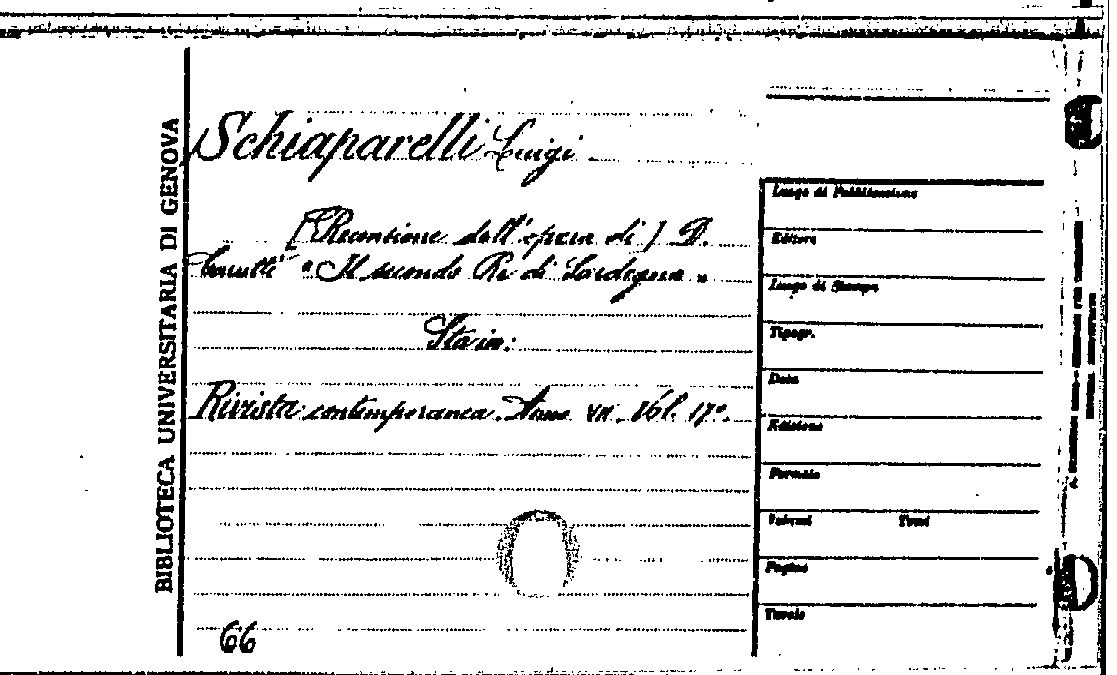 BIBLIOTECA UNIVERSITARIA DI GENOVA
Schiaparelli Luigi
[Recensione dell'opera di] D.
" Il secondo Re di Sardegna "
Sta in:
Rivista contemporanea. Anno VII. Vol. 17°.
66
Luogo di Pubblicazione
Editore
Luogo di Stampa
Tipogr.
Data
Edizione
Formato
Volumi Tomi
Pagine
Tavole